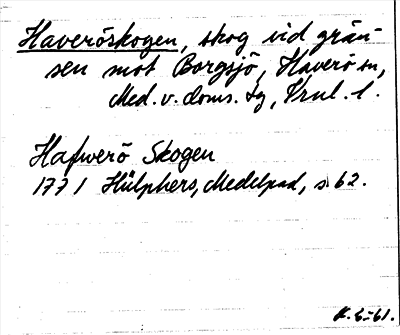 Haveröskogen, skog vid grän-
sen mot Borgsjö, Haverö sn,
Med. v. doms. tg, Vrnl. l.
Hafwerö Skogen
1771 Hülphers, Medelpad, s. 62.